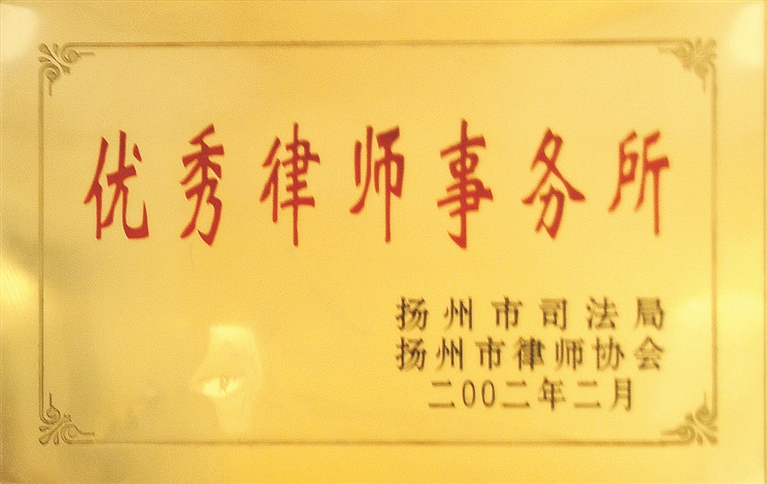 优秀律师事务所
扬州市司法局
扬州市律师协会
二00二年二月